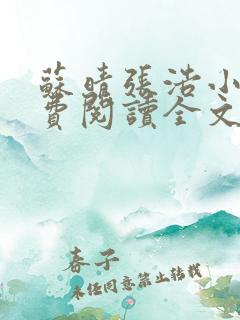 蘇晴張浩小
費閱讀全文
春子
未经同意禁止转载